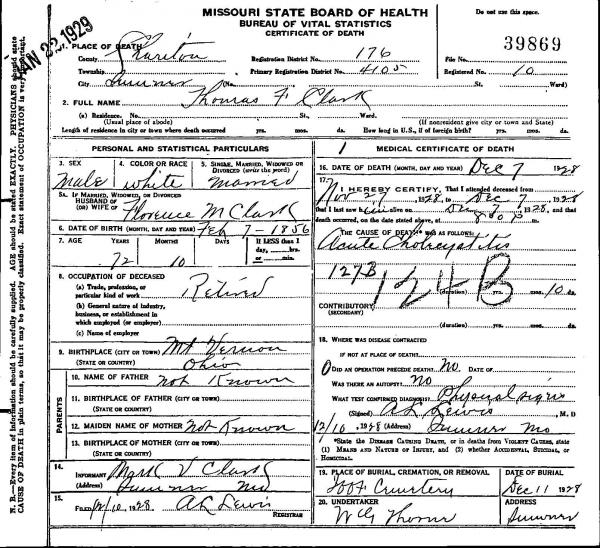 MISSOURI STATE BOARD OF HEALTH
BUREAU OF VITAL STATISTICS
CERTIFICATE OF DEATH
Do not use this space.
JAN 22 1929
39869
1. PLACE OF DEATH
County Chariton Registration District No. 176 File No.
Township Primary Registration District No. 4105 Registered No. 10
City Sumner (No. St. Ward)
2. FULL NAME Thomas F Clark
(a) Residence. No. St., Ward.
(Usual place of abode) (If nonresident give city or town and State)
Length of residence in city or town where death occurred yrs. mos. ds. How long in U.S., if of foreign birth? yrs. mos. ds.
PERSONAL AND STATISTICAL PARTICULARS
3. SEX Male
4. COLOR OR RACE white
5. SINGLE, MARRIED, WIDOWED OR DIVORCED (write the word) Married
5A. IF MARRIED, WIDOWED, OR DIVORCED
HUSBAND OF
(OR) WIFE OF Florence M Clark
6. DATE OF BIRTH (MONTH, DAY AND YEAR) Feb 7 - 1856
7. AGE YEARS MONTHS DAYS If LESS than 1 day, hrs. or min.
72 10
8. OCCUPATION OF DECEASED
(a) Trade, profession, or
particular kind of work Retired
(b) General nature of industry,
business, or establishment in
which employed (or employer)
(c) Name of employer
9. BIRTHPLACE (CITY OR TOWN) Mt Vernon
(STATE OR COUNTRY) Ohio
PARENTS
10. NAME OF FATHER Not Known
11. BIRTHPLACE OF FATHER (CITY OR TOWN)
(STATE OR COUNTRY)
12. MAIDEN NAME OF MOTHER Not Known
13. BIRTHPLACE OF MOTHER (CITY OR TOWN)
(STATE OR COUNTRY)
14. INFORMANT Mark V Clark
(Address) Sumner Mo
15. FILED 12/10, 1928 A L Lewis
REGISTRAR
MEDICAL CERTIFICATE OF DEATH
16. DATE OF DEATH (MONTH, DAY AND YEAR) Dec 7 1928
17. I HEREBY CERTIFY, That I attended deceased from
Nov 27, 1928, to Dec 7, 1928
that I last saw him alive on 1928, and that
death occurred, on the date stated above, at
THE CAUSE OF DEATH* WAS AS FOLLOWS:
Acute Cholecystitis
127B
124B
(duration) yrs. mos. 10 ds.
CONTRIBUTORY
(SECONDARY)
(duration) yrs. mos. ds.
18. WHERE WAS DISEASE CONTRACTED
IF NOT AT PLACE OF DEATH?
DID AN OPERATION PRECEDE DEATH? No. DATE OF
WAS THERE AN AUTOPSY? No
WHAT TEST CONFIRMED DIAGNOSIS? Physical signs
(Signed) A L Lewis, M.D
12/10, 1928 (Address) Sumner Mo
*State the DISEASE CAUSING DEATH, or in deaths from VIOLENT CAUSES, state
(1) MEANS AND NATURE OF INJURY, and (2) whether ACCIDENTAL, SUICIDAL, or
HOMICIDAL.
19. PLACE OF BURIAL, CREMATION, OR REMOVAL DATE OF BURIAL
Cemetery Dec 11 1928
20. UNDERTAKER ADDRESS
Sumner
N. B.—Every item of information should be carefully supplied. AGE should be stated EXACTLY. PHYSICIANS should state
CAUSE OF DEATH in plain terms, so that it may be properly classified. Exact statement of OCCUPATION is very important.